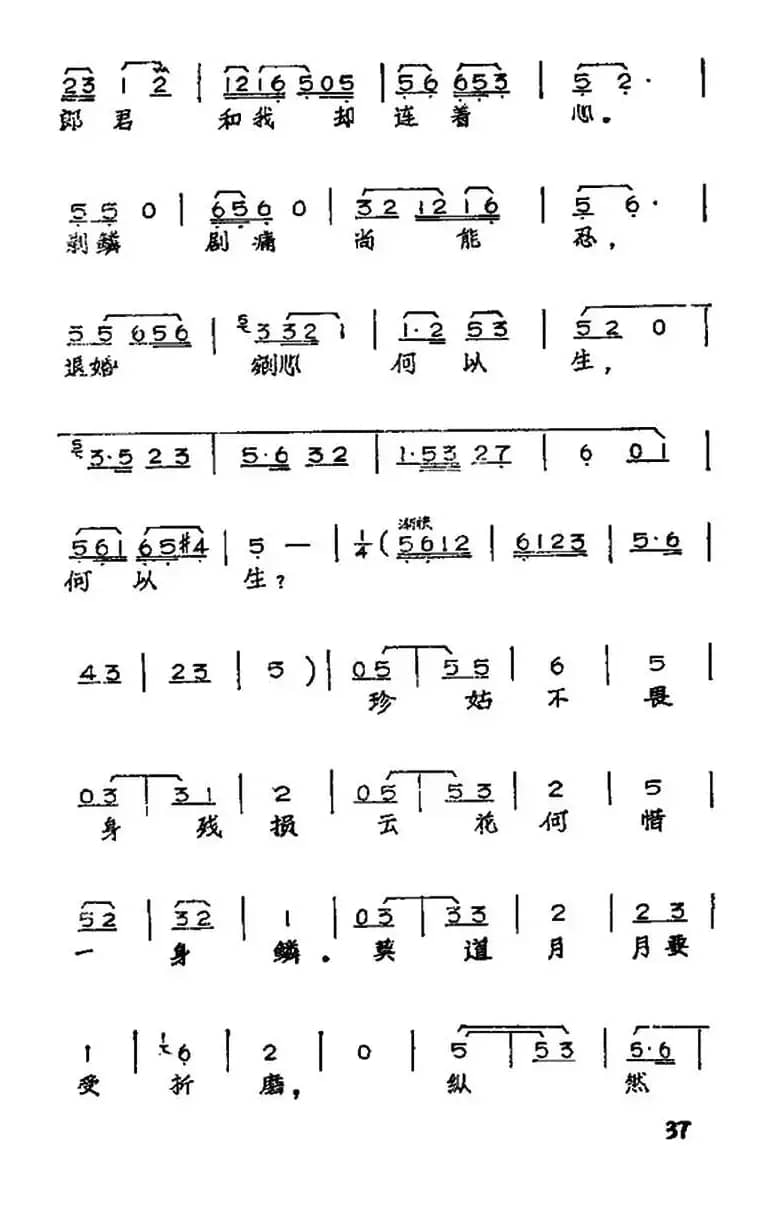 23 1 2 | 1216 505 | 56 653 | 5 2· |
郎君 和我 却 连着 心。
55 0 | 656 0 | 32 1216 | 5 6· |
剥鳞 剧痛 尚能 忍，
55 656 | 5 332 1 | 1·2 53 | 5 2 0 |
退婚 剜心 何以 生，
5 3·5 23 | 5·6 32 | 1·53 27 | 6 01 |
561 65#4 | 5 — | 1/4 ( 渐快 5612 | 6123 | 5·6 |
何以 生？
43 | 23 | 5 ) | 05 | 55 | 6 | 5 |
珍姑不畏
03 | 31 | 2 | 05 | 53 | 2 | 5 |
身残损 云花何惜
52 | 32 | 1 | 03 | 33 | 2 | 23 |
一身鳞。莫道月月要
1 | 1 6 | 2 | 0 | 5 | 53 | 5·6 |
受折磨， 纵然
37